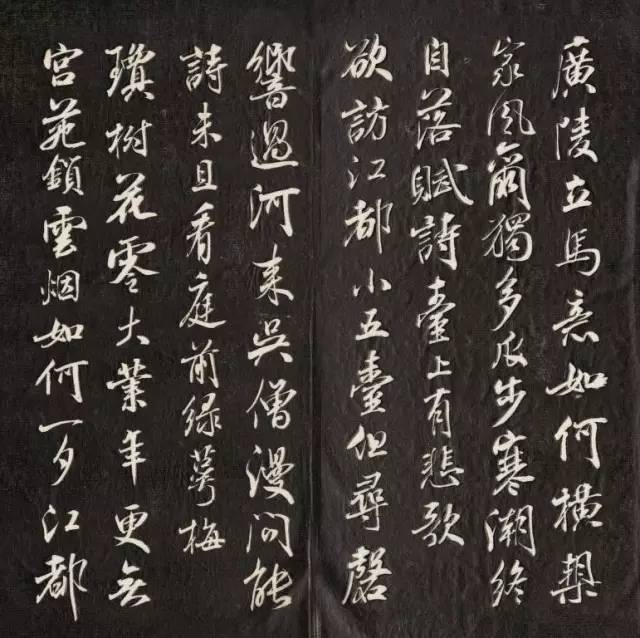 廣陵立馬意如何橫槊
家風爾獨多瓜步寒潮終
自落賦詩臺上有悲歌
欲訪江都小五臺但尋磬
響過河来吳僧漫問能
詩未且看庭前緑萼梅
瓊樹花零大業年更无
宮苑鎖雲烟如何一夕江都